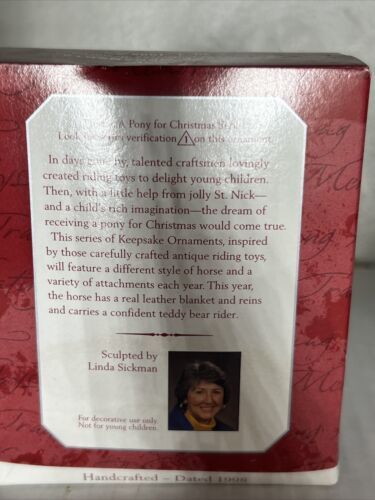 A Pony for Christmas
Look for this verification 1 on this ornament.
In days gone by, talented craftsmen lovingly
created riding toys to delight young children.
Then, with a little help from jolly St. Nick—
and a child's rich imagination—the dream of
receiving a pony for Christmas would come true.
This series of Keepsake Ornaments, inspired
by those carefully crafted antique riding toys,
will feature a different style of horse and a
variety of attachments each year. This year,
the horse has a real leather blanket and reins
and carries a confident teddy bear rider.
Sculpted by
Linda Sickman
For decorative use only.
Not for young children.
Handcrafted – Dated 1998